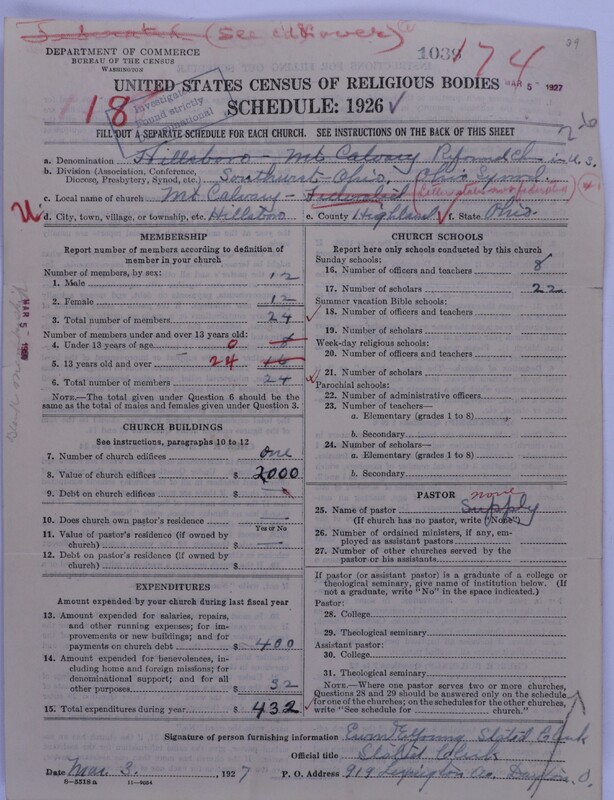 (see ed & over)
DEPARTMENT OF COMMERCE
BUREAU OF THE CENSUS
WASHINGTON
1039
174
29
MAR 5 1927
UNITED STATES CENSUS OF RELIGIOUS BODIES
118
SCHEDULE: 1926
Investigated
found strictly
denominational
FILL OUT A SEPARATE SCHEDULE FOR EACH CHURCH. SEE INSTRUCTIONS ON THE BACK OF THIS SHEET
a. Denomination Hillsboro - Mt Calvary Reformed Ch in U.S.
b. Division (Association, Conference, Diocese, Presbytery, Synod, etc.) Southwest Ohio, Ohio Synod
c. Local name of church Mt Calvary - Federated
d. City, town, village, or township, etc. Hillsboro e. County Highland f. State Ohio
MAR 5 1927
MEMBERSHIP
Report number of members according to definition of
member in your church
Number of members, by sex:
1. Male 12
2. Female 12
3. Total number of members 24
Number of members under and over 13 years old:
4. Under 13 years of age 0 8
5. 13 years old and over 24 16
6. Total number of members 24
NOTE.—The total given under Question 6 should be the
same as the total of males and females given under Question 3.
CHURCH BUILDINGS
See instructions, paragraphs 10 to 12
7. Number of church edifices One
8. Value of church edifices $ 2000
9. Debt on church edifices $
10. Does church own pastor's residence
Yes or No
11. Value of pastor's residence (if owned by
church) $
12. Debt on pastor's residence (if owned by
church) $
EXPENDITURES
Amount expended by your church during last fiscal year
13. Amount expended for salaries, repairs,
and other running expenses; for im-
provements or new buildings; and for
payments on church debt $ 400
14. Amount expended for benevolences, in-
cluding home and foreign missions; for
denominational support; and for all
other purposes $ 32
15. Total expenditures during year $ 432
CHURCH SCHOOLS
Report here only schools conducted by this church
Sunday schools:
16. Number of officers and teachers 8
17. Number of scholars 22
Summer vacation Bible schools:
18. Number of officers and teachers
19. Number of scholars
Week-day religious schools:
20. Number of officers and teachers
21. Number of scholars
Parochial schools:
22. Number of administrative officers
23. Number of teachers—
a. Elementary (grades 1 to 8)
b. Secondary
24. Number of scholars—
a. Elementary (grades 1 to 8)
b. Secondary
PASTOR
none
25. Name of pastor Supply
(If church has no pastor, write "None")
26. Number of ordained ministers, if any, em-
ployed as assistant pastors
27. Number of other churches served by the
pastor or his assistants
If pastor (or assistant pastor) is a graduate of a college or
theological seminary, give name of institution below. (If
not a graduate, write "No" in the space indicated.)
Pastor:
28. College
29. Theological seminary
Assistant pastor:
30. College
31. Theological seminary
NOTE.—Where one pastor serves two or more churches,
Questions 28 and 29 should be answered only on the schedule
for one of the churches; on the schedules for the other churches,
write "See schedule for church."
Signature of person furnishing information Stated Clerk
Official title Stated Clerk
Date Mar. 3, 1927 P. O. Address 919 Lexington Av. Dayton, O.
8—5518 a 11—9064